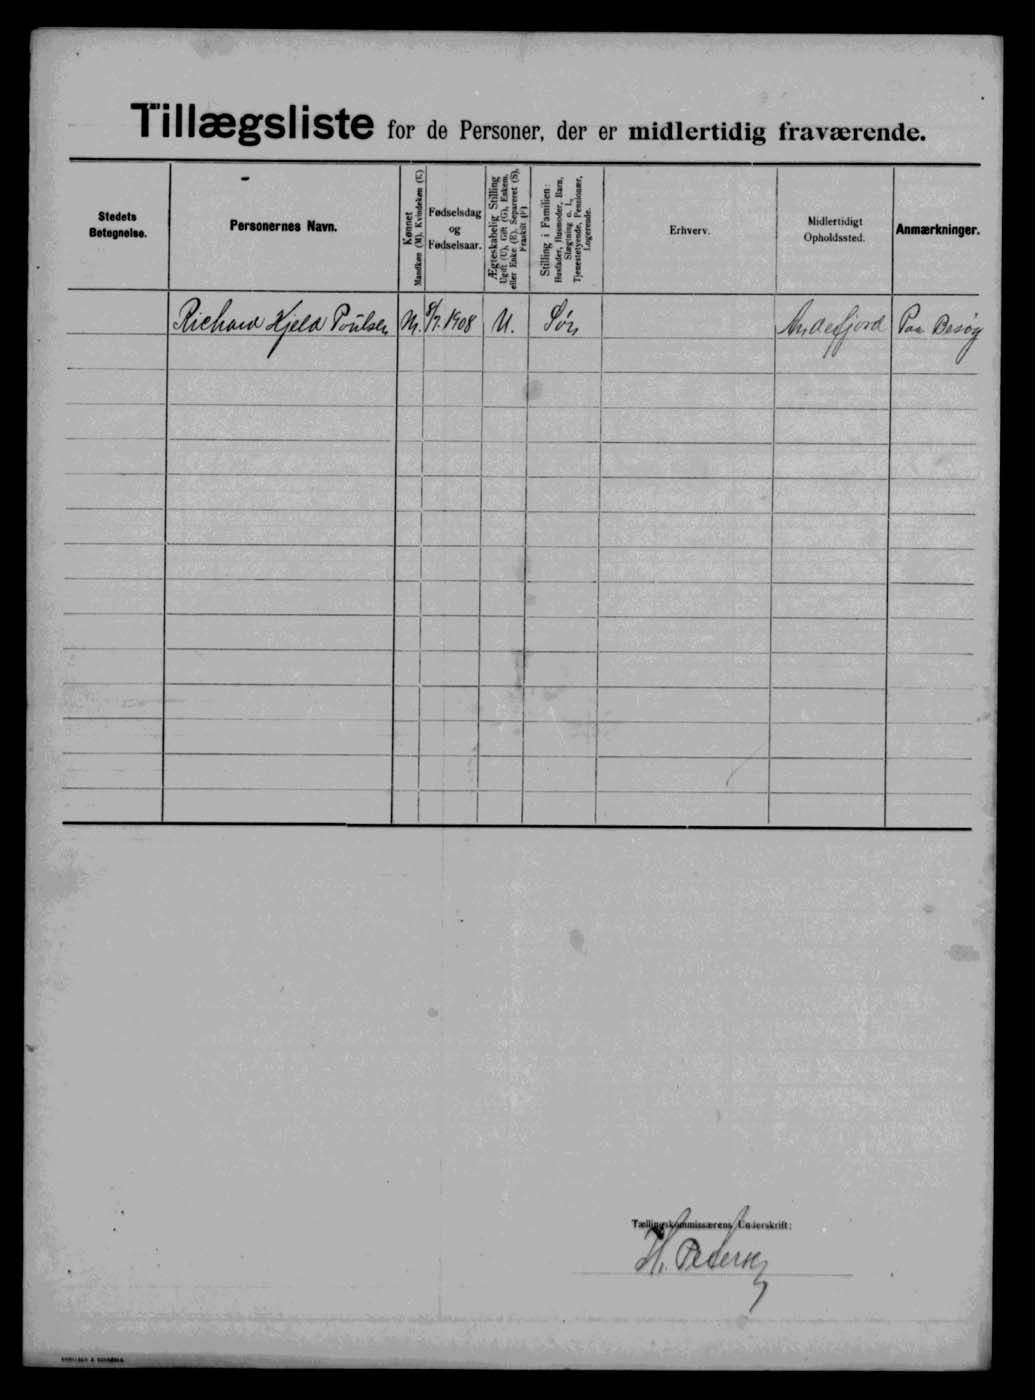 Tillægsliste for de Personer, der er midlertidig fraværende.
Stedets Betegnelse.
Personernes Navn.
Kønnet Mandkøn (M), Kvindekøn (K)
Fødselsdag og Fødselsaar.
Ægteskabelig Stilling Ugift (U), Gift (G), Enkem. eller Enke (E), Separeret (S), Fraskilt (F)
Stilling i Familien: Husfader, Husmoder, Barn, Slægtning o. l., Tjenestetyende, Pensionær, Logerende.
Erhverv.
Midlertidigt Opholdssted.
Anmærkninger.
Richard Kjeld Poulsen M. 8/7. 1908 U. Søn Andefjord Paa Besøg
Tællingskommissærens Underskrift:
H. Petersen